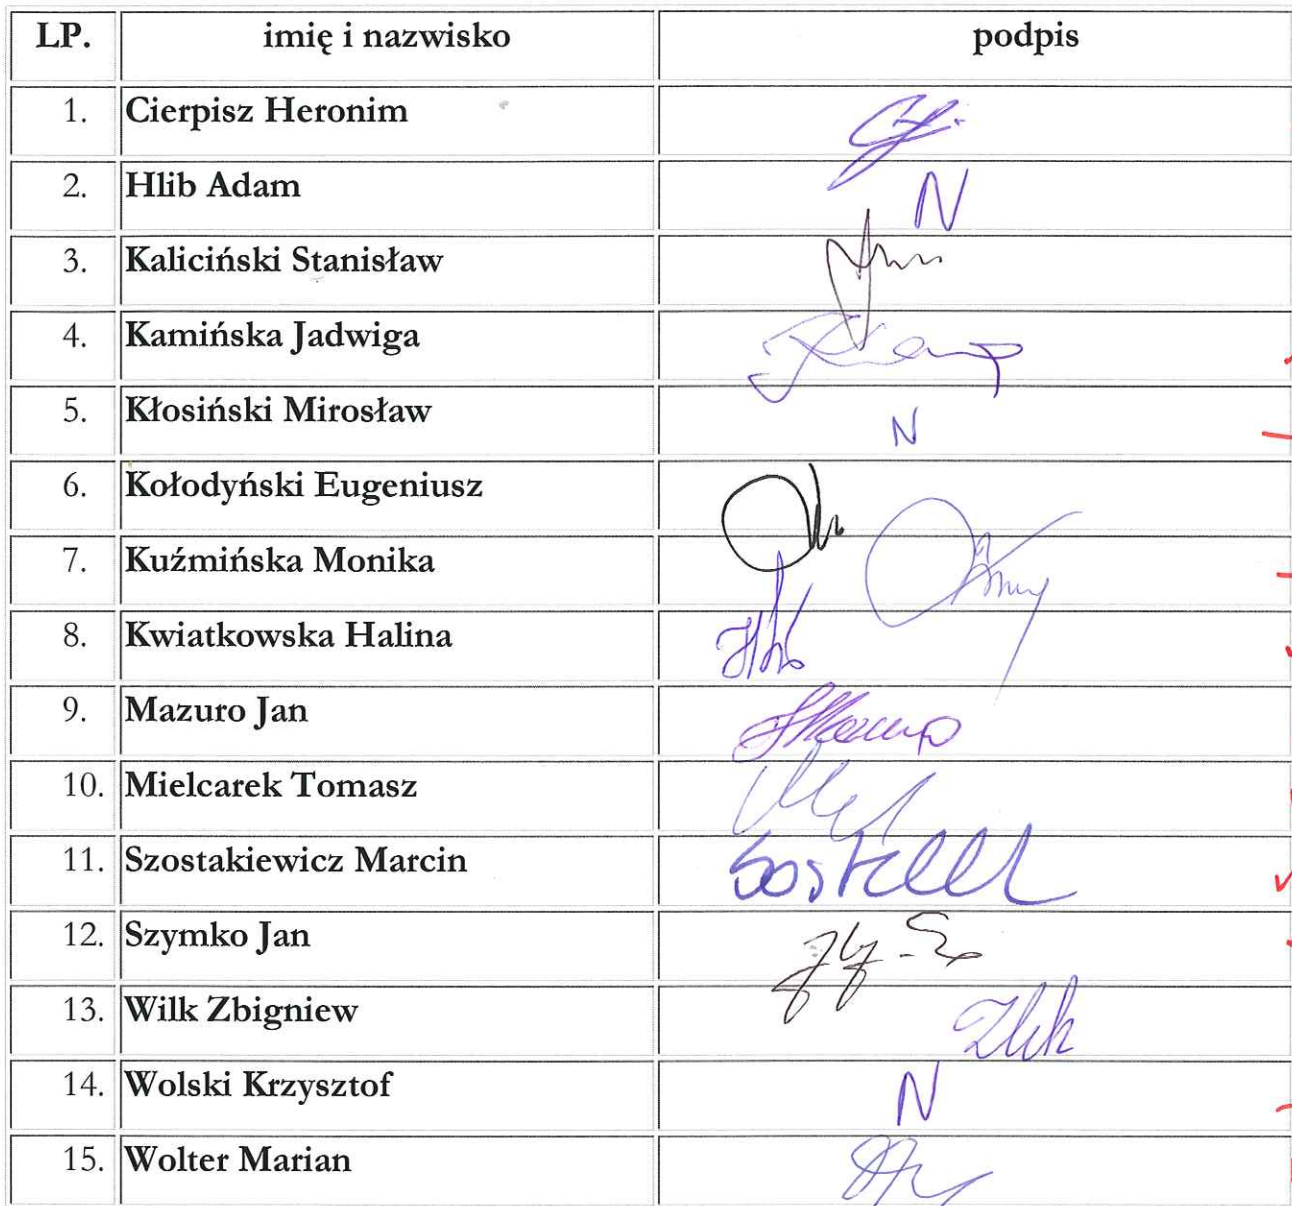 LP. imię i nazwisko podpis
1. Cierpisz Heronim
2. Hlib Adam N
3. Kaliciński Stanisław
4. Kamińska Jadwiga
5. Kłosiński Mirosław N
6. Kołodyński Eugeniusz
7. Kuźmińska Monika
8. Kwiatkowska Halina
9. Mazuro Jan
10. Mielcarek Tomasz
11. Szostakiewicz Marcin
12. Szymko Jan
13. Wilk Zbigniew
14. Wolski Krzysztof N
15. Wolter Marian